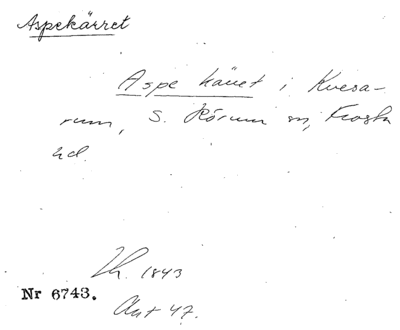 Aspekärret
Aspe käret i Kvesa-
rum, S. Rörum sn, Frosta
hd.
Lh. 1843
Nr 6743.
Akt 47.